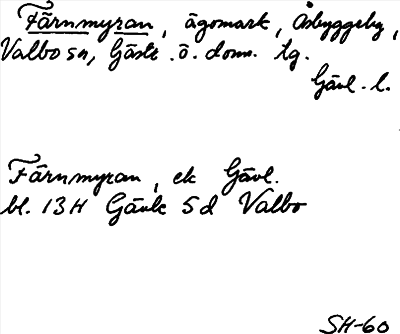 Färnmyran, ägomark, Åbyggeby,
Valbo sn, Gästr. ö. doms. tg.
Gävl. l.
Färnmyran, ek Gävl.
bl. 13H Gävle 5d Valbo
SH-60